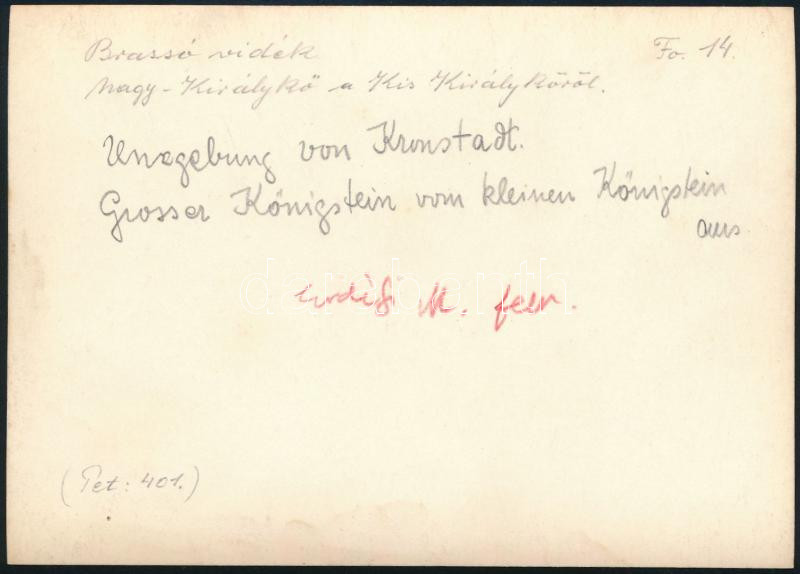 Brassó vidék Fo. 14.
Nagy-Királykő a Kis Királykőről.
Umgebung von Kronstadt.
Grosser Königstein vom kleinen Königstein
aus
M. felv.
(Tet: 401.)